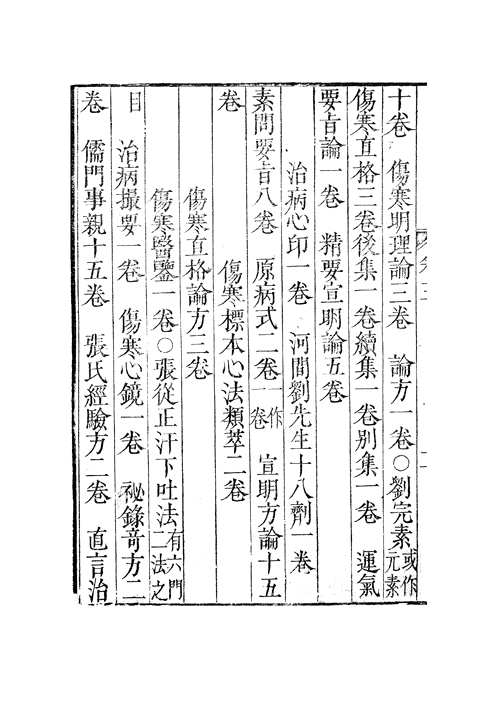 十卷　傷寒明理論三卷　論方一卷○劉完素或作元素
傷寒直格三卷後集一卷續集一卷別集一卷　運氣
要旨論一卷　精要宣明論五卷
治病心印一卷　河間劉先生十八劑一卷
素問要旨八卷　原病式二卷一作一卷　宣明方論十五
卷　傷寒標本心法類萃二卷
傷寒直格論方三卷
傷寒醫鑒一卷○張從正汗下吐法有六門二法之
目　治病撮要一卷　傷寒心鏡一卷　祕錄奇方二
卷　儒門事親十五卷　張氏經驗方二卷　直言治